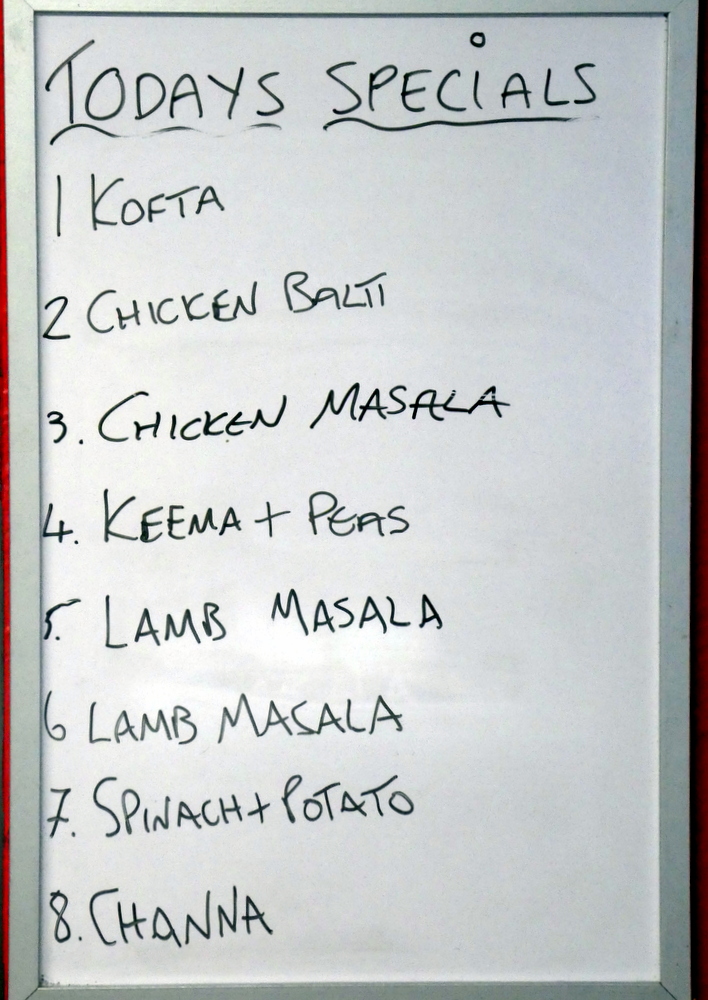 TODAYS SPECiALS
1 KOFTA
2 CHICKEN BALTI
3. CHICKEN MASALA
4. KEEMA + PEAS
5. LAMB MASALA
6 LAMB MASALA
7. SPINACH + POTATO
8. CHANNA